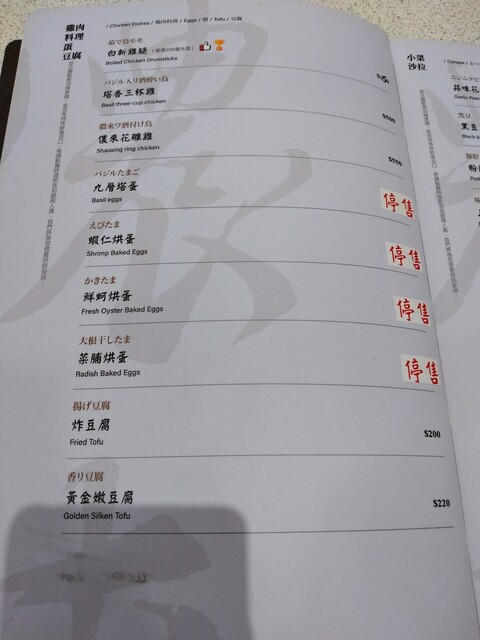 雞肉料理 蛋 豆腐
/ Chicken Dishes / 鶏肉料理 / Eggs / 卵 / Tofu / 豆腐
茹で鳥モモ
白斬雞腿
Boiled Chicken Drumsticks
バジル入り酒酔い鳥
塔香三杯雞
Basil three-cup chicken
$500
儂來ワ酒付け鳥
儂來花雕雞
Shaoxing ring chicken
$550
バジルたまご
九層塔蛋
Basil eggs
停售
えびたま
蝦仁烘蛋
Shrimp Baked Eggs
停售
かきたま
鮮蚵烘蛋
Fresh Oyster Baked Eggs
停售
大根干したま
菜脯烘蛋
Radish Baked Eggs
停售
揚げ豆腐
炸豆腐
Fried Tofu
$200
香り豆腐
黃金嫩豆腐
Golden Silken Tofu
$220
小菜
沙拉
/ Canape /
ニンニク
蒜味花
Garlic Pea
黒豆
黑豆
Black b
豚肝
粉
Por